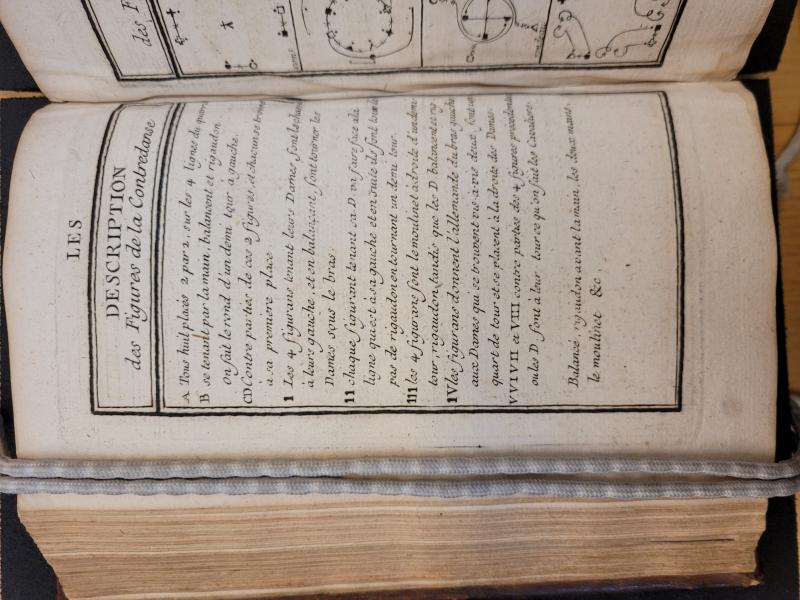 LES
DESCRIPTION
des Figures de la Contredanse
A Tous huit placés 2 par 2, sur les 4 lignes du quarré
B se tenant par la main, balancent et rigaudon
on fait le rond d'un demi tour a gauche.
CD Contre parties de ces 2 figures, et chacun se trouve
à sa premiere place
I Les 4 figurans tenant leurs Dames font le
à leurs gauche, et en balançant, font tourner les
Dames sous le bras.
II chaque figurant tenant sa D. va faire face a la
ligne qui est à sa gauche et en suite ils font tous le
pas de rigaudon en tournant un demi tour.
III les 4 figurans font le moulinet à droite d'un demi
tour, rigaudon, tandis que les D balancent et
IV les figurans donnent l'allemande du bras gauche
aux Dames qui se trouvent vis-a-vis deux, font un
quart de tour et se placent à la droite des Dames.
V VI VII et VIII contre parties des 4 figures précédentes
ou les D. font à leur tour ce qu'on fait les Cavaliers.
Balancé, rigaudon avant la main, les deux mains.
le moulinet &c.
des F